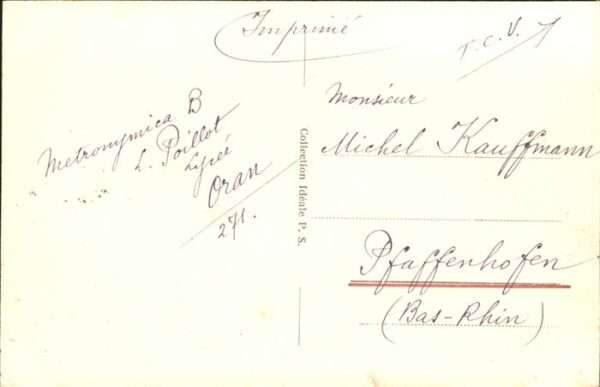 Imprimé
T.C.V.
Metronymica B
L. Poillot
Lycée
Oran
271.
Collection Idéale P. S.
Monsieur
Michel Kauffmann
Pfaffenhofen
(Bas-Rhin)